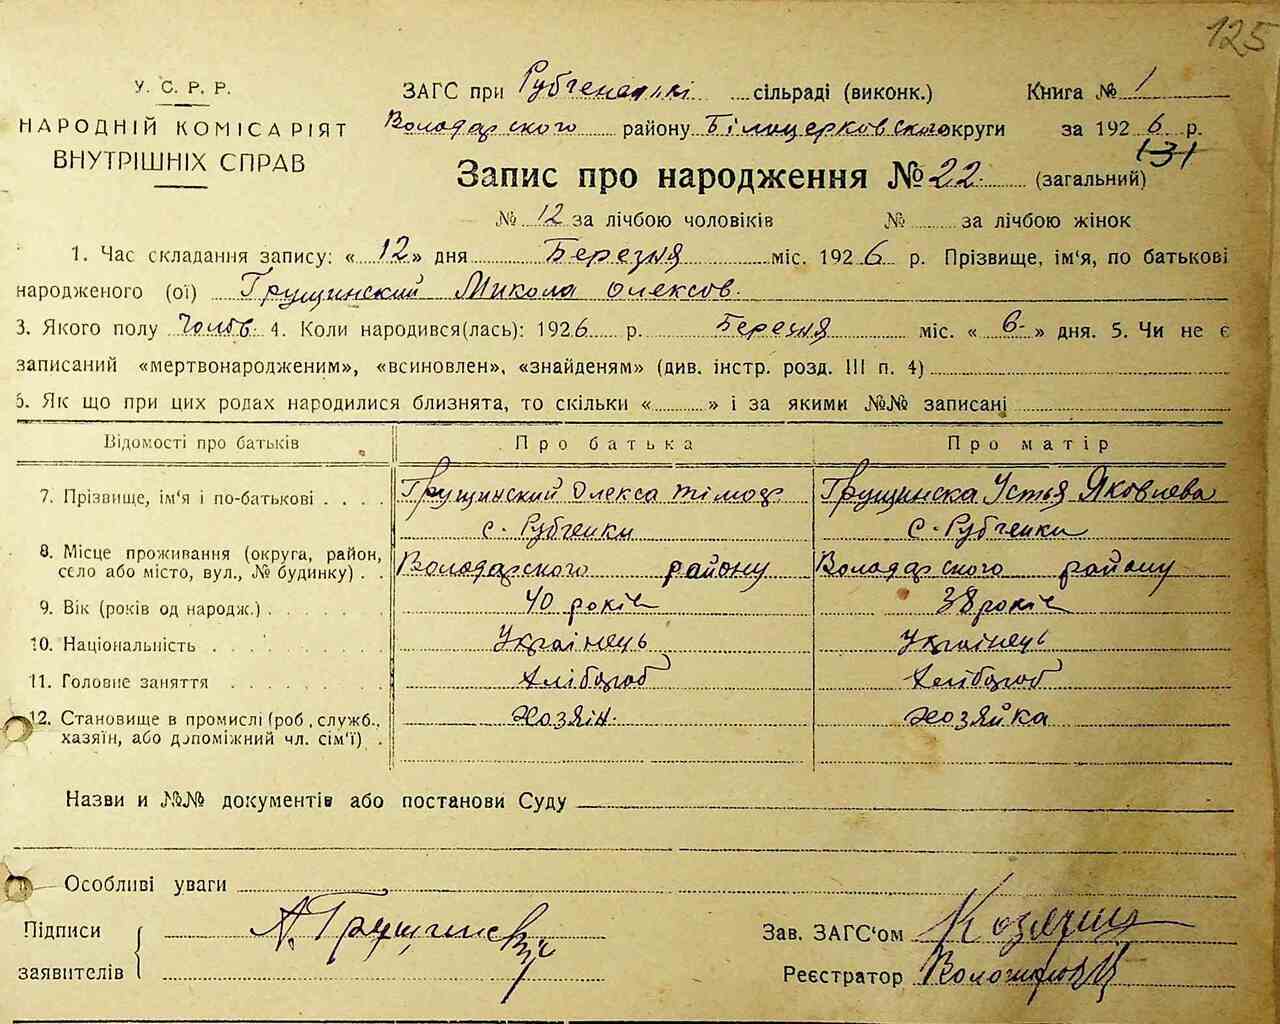 125
У. С. Р. Р.
НАРОДНІЙ КОМІСАРІЯТ
ВНУТРІШНІХ СПРАВ
ЗАГС при Рубченській сільраді (виконк.) Книга № 1
Володарского району Білоцерковского округи за 1926 р.
Запис про народження № 22 (загальний) 131
№ 12 за лічбою чоловіків № за лічбою жінок
1. Час складання запису: « 12 » дня Березня міс. 1926 р. Прізвище, ім'я, по батькові
народженого (ої) Грущинский Микола Олексов.
3. Якого полу Чолов. 4. Коли народився(лась): 1926 р. Березня міс. « 6 » дня. 5. Чи не є
записаний «мертвонародженим», «всиновлен», «знайденям» (див. інстр. розд. III п. 4)
6. Як що при цих родах народилися близнята, то скільки « » і за якими №№ записані
Відомості про батьків Про батька Про матір
7. Прізвище, ім'я і по-батькові . . . . Грущинский Олекса Тімоф Грущинска Устья Яковлева
с. Рубченки с. Рубченки
8. Місце проживання (округа, район,
село або місто, вул., № будинку) . . Володарского району Володарского району
9. Вік (років од народж.) . . . . . . 40 років 38 років
10. Національність . . . . . . . . . Українець Українець
11. Головне заняття . . . . . . . Хлібороб Хлібороб
12. Становище в промислі (роб., служб.,
хазяїн, або допоміжний чл. сім'ї) . Хозяін. Хозяйка
Назви и №№ документів або постанови Суду
Особливі уваги
Підписи
заявителів
А. Грущинский
Зав. ЗАГС'ом
Реєстратор